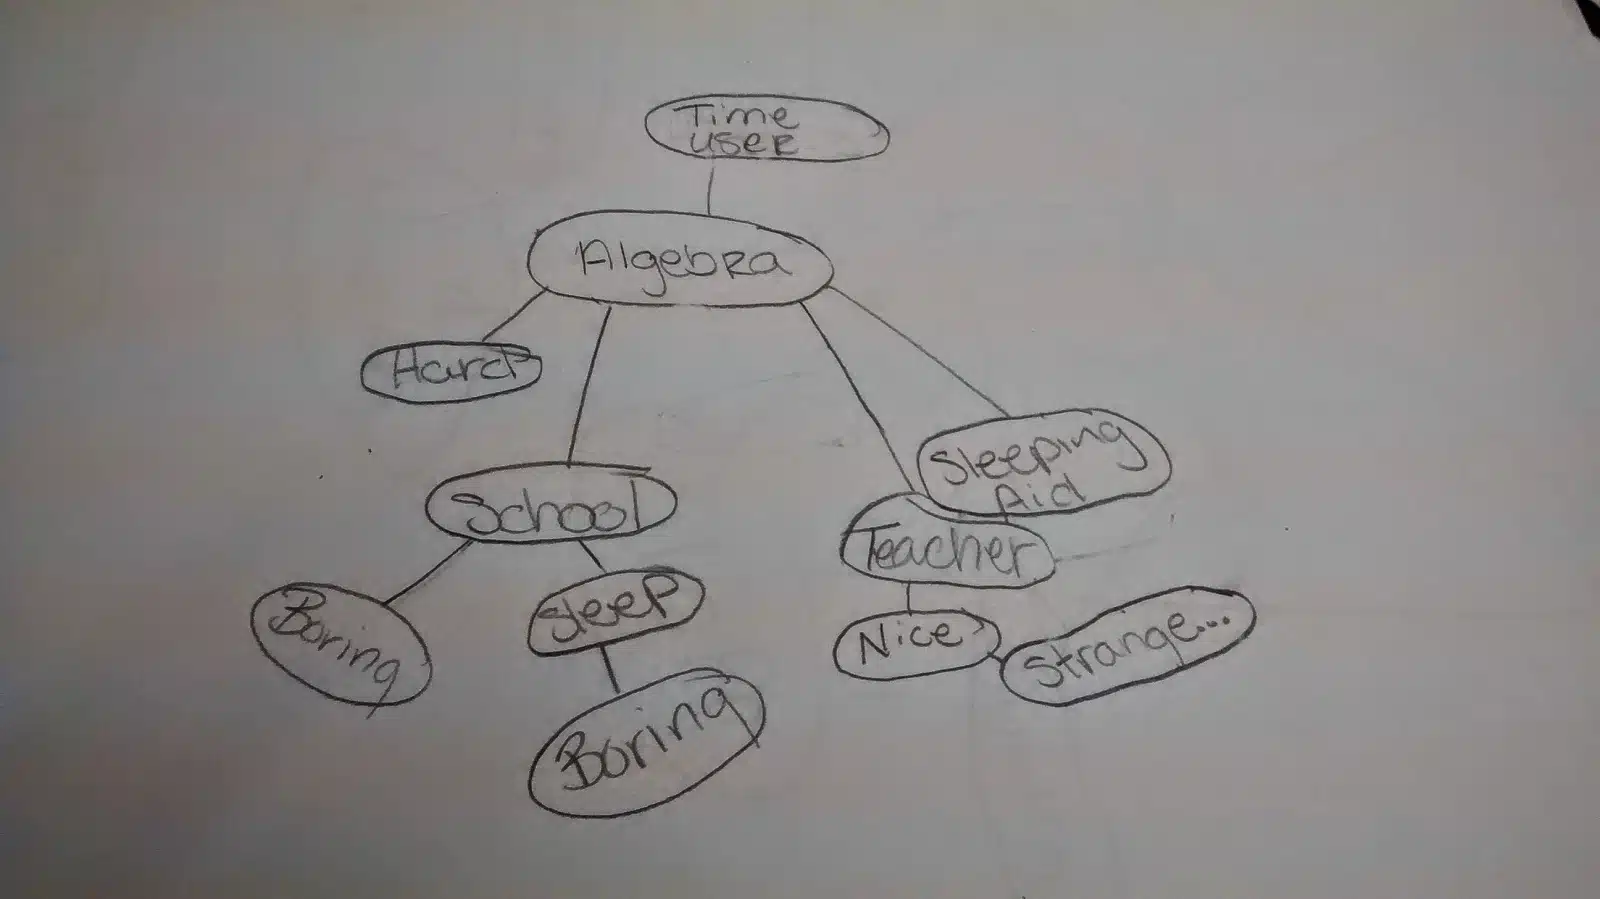 Time
user
Algebra
Hard
School
Sleeping
Aid
Teacher
Boring
Sleep
Nice
Strange...
Boring